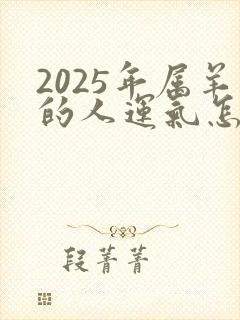 2025年属羊
的人运氣怎
段菁菁